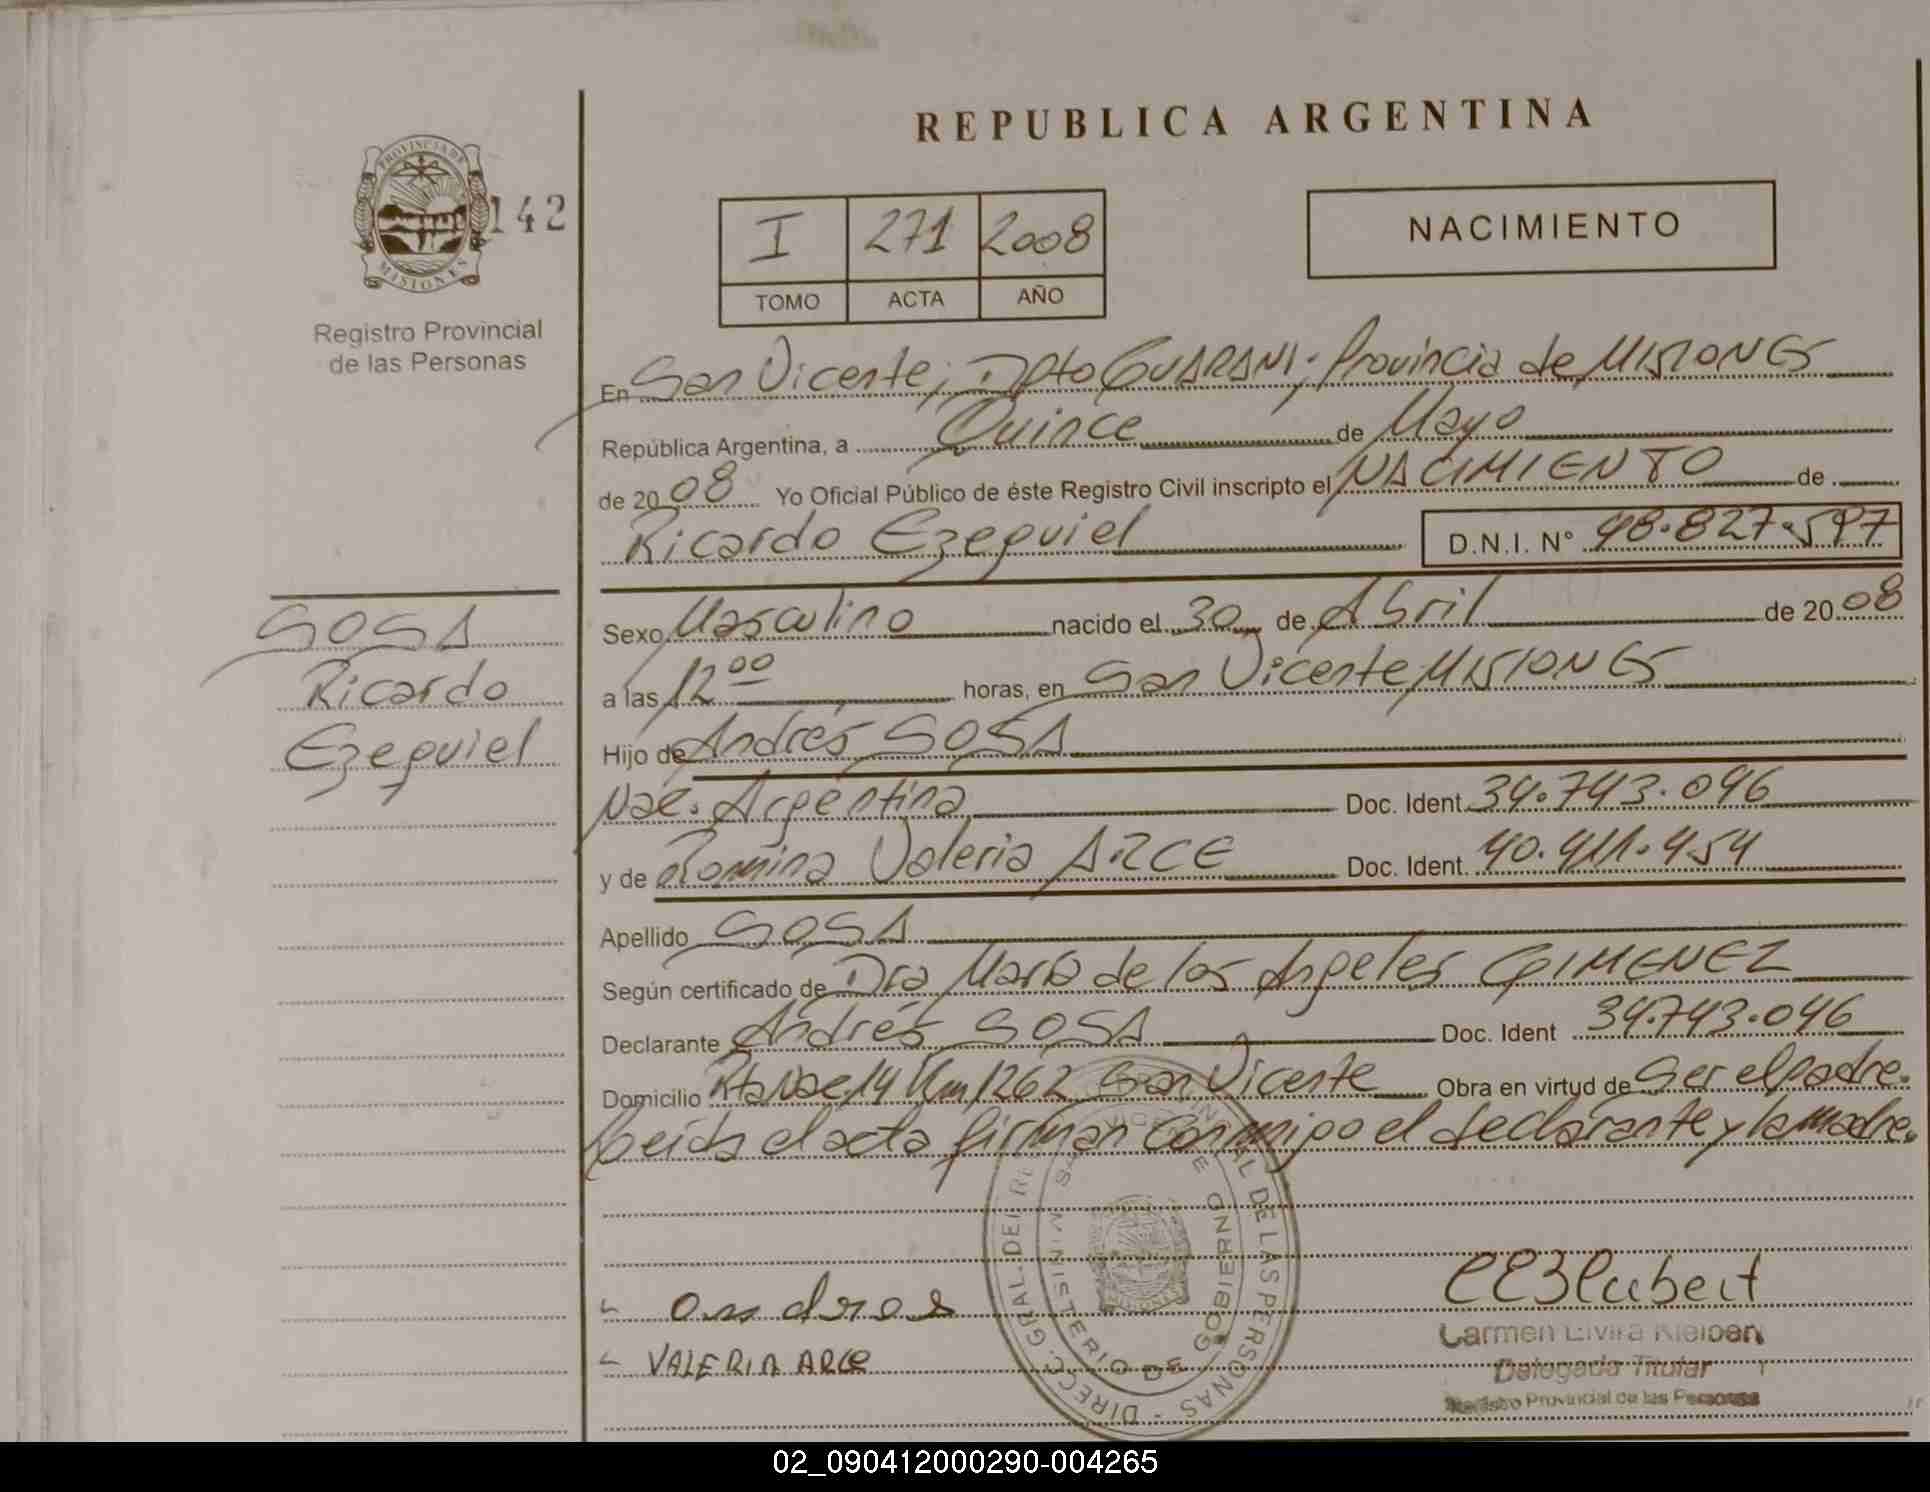 REPUBLICA ARGENTINA
PROVINCIA DE
MISIONES
142
Registro Provincial
de las Personas
I 271 2008
TOMO ACTA AÑO
NACIMIENTO
En San Vicente; Dpto GUARANI; Provincia de MISIONES
República Argentina, a Quince de Mayo
de 2008 Yo Oficial Público de éste Registro Civil inscripto el NACIMIENTO de
Ricardo Ezequiel D.N.I. N° 48.827.597
SOSA
Ricardo
Ezequiel
Sexo Masculino nacido el 30 de Abril de 2008
a las 12 00 horas, en San Vicente MISIONES
Hijo de Andrés SOSA
Nac. Argentina Doc. Ident. 34.743.096
y de Romina Valeria ARCE Doc. Ident. 40.411.454
Apellido SOSA
Según certificado de Dra María de los Angeles GIMENEZ
Declarante Andrés SOSA Doc. Ident 34.743.046
Domicilio Rta Nac 14 Km 1262 San Vicente Obra en virtud de Ser el padre.
Leída el acta firman conmigo el declarante y la madre.
andres
VALERIA ARCE
DIRECC. GRAL. DEL DE LAS PERSONAS
MINISTERIO DE GOBIERNO
MISIONES
Carmen Elvira
Delegada Titular
Registro Provincial de las Personas
02_090412000290-004265